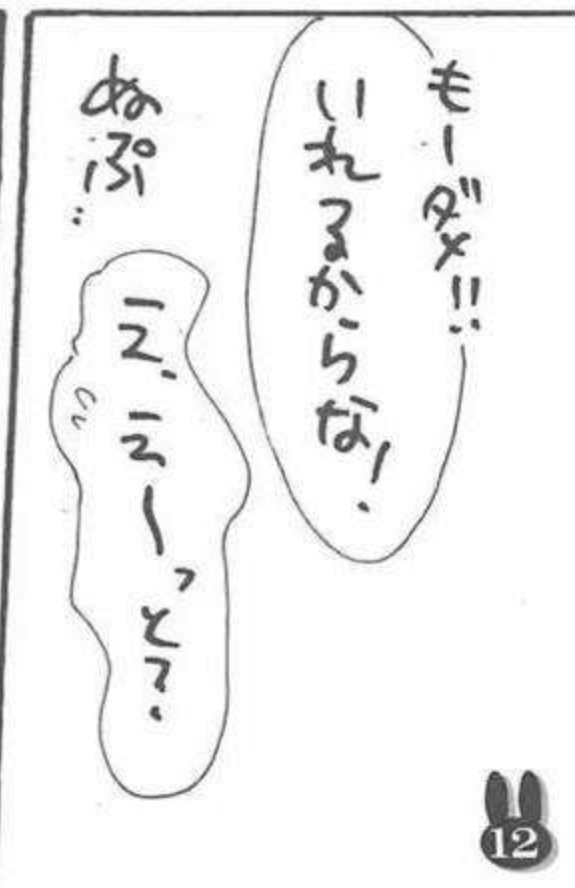 もーダメ!!
いれるからな!
ぬぷ‥
え、えーっと?
12